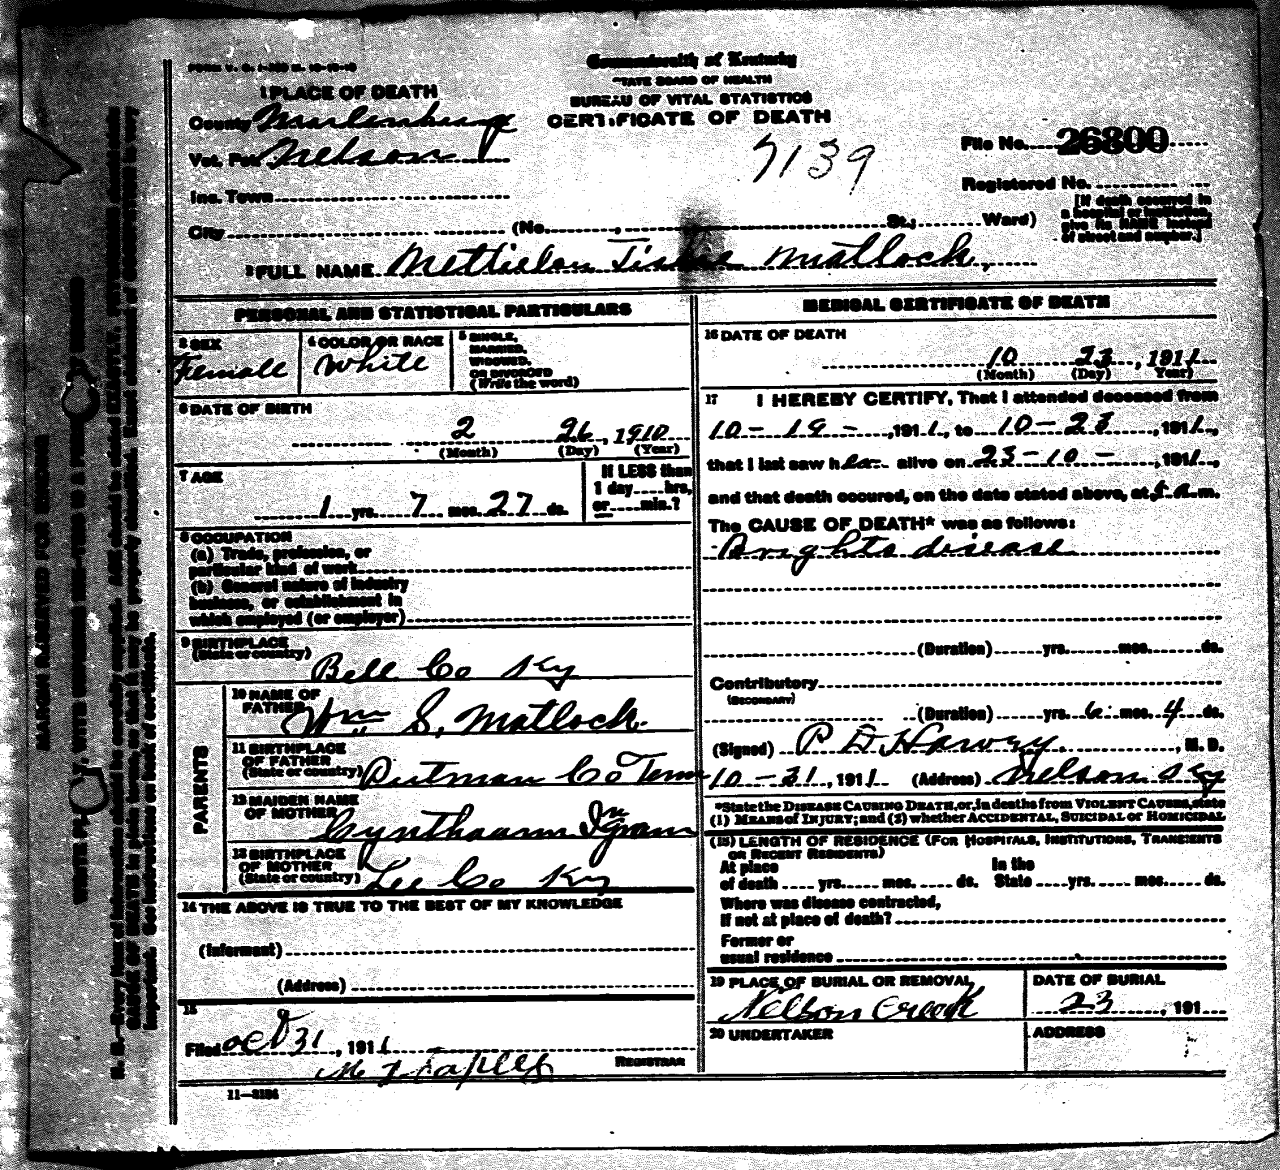 FORM V. S. 1-
Commonwealth of Kentucky
STATE BOARD OF HEALTH
BUREAU OF VITAL STATISTICS
CERTIFICATE OF DEATH
1 PLACE OF DEATH
County Muhlenburg
Vot. Pct. Nelson
Inc. Town
City
(No. , St.; Ward)
7139
File No. 26800
Registered No.
[If death occurred in
a hospital or institution,
give its NAME instead
of street and number.]
2 FULL NAME Mettielou Matlock,
PERSONAL AND STATISTICAL PARTICULARS
3 SEX
Female
4 COLOR OR RACE
White
5 SINGLE,
MARRIED,
WIDOWED,
OR DIVORCED
(Write the word)
6 DATE OF BIRTH
2 26, 1910
(Month) (Day) (Year)
7 AGE
1 yrs. 7 mos. 27 ds.
If LESS than
1 day hrs.
or min.?
8 OCCUPATION
(a) Trade, profession, or
particular kind of work
(b) General nature of industry
business, or establishment in
which employed (or employer)
9 BIRTHPLACE
(State or country) Bell Co Ky
PARENTS
10 NAME OF
FATHER Wm S. Matlock
11 BIRTHPLACE
OF FATHER
(State or country) Putman Co Tenn
12 MAIDEN NAME
OF MOTHER Cynthaann Igram
13 BIRTHPLACE
OF MOTHER
(State or country) Lee Co Ky
14 THE ABOVE IS TRUE TO THE BEST OF MY KNOWLEDGE
(Informant)
(Address)
15
Filed Oct 31, 1911
M Staples REGISTRAR
11-3184
MEDICAL CERTIFICATE OF DEATH
16 DATE OF DEATH
10 23, 1911
(Month) (Day) (Year)
17 I HEREBY CERTIFY, That I attended deceased from
10-19-, 1911, to 10-23, 1911,
that I last saw her alive on 23-10-, 1911,
and that death occured, on the date stated above, at m.
The CAUSE OF DEATH* was as follows:
Brights disease
(Duration) yrs. mos. ds.
Contributory
(SECONDARY)
(Duration) yrs. 6 mos. 4 ds.
(Signed) P D Harvey, M. D.
10-31, 1911 (Address) Nelson Ky
*State the DISEASE CAUSING DEATH, or, in deaths from VIOLENT CAUSES, state
(1) MEANS of INJURY; and (2) whether ACCIDENTAL, SUICIDAL or HOMICIDAL
(18) LENGTH OF RESIDENCE (FOR HOSPITALS, INSTITUTIONS, TRANSIENTS
OR RECENT RESIDENTS)
At place In the
of death yrs. mos. ds. State yrs. mos. ds.
Where was disease contracted,
if not at place of death?
Former or
usual residence
19 PLACE OF BURIAL OR REMOVAL
Nelson Creek
DATE OF BURIAL
23, 191
20 UNDERTAKER
ADDRESS
MARGIN RESERVED FOR BINDING
WRITE PLAINLY, WITH UNFADING INK—THIS IS A PERMANENT RECORD
N. B.—Every item of information should be carefully supplied. AGE should be stated EXACTLY. PHYSICIANS should state
CAUSE OF DEATH in plain terms, so that it may be properly classified. Exact statement of OCCUPATION is very
important. See instructions on back of certificate.